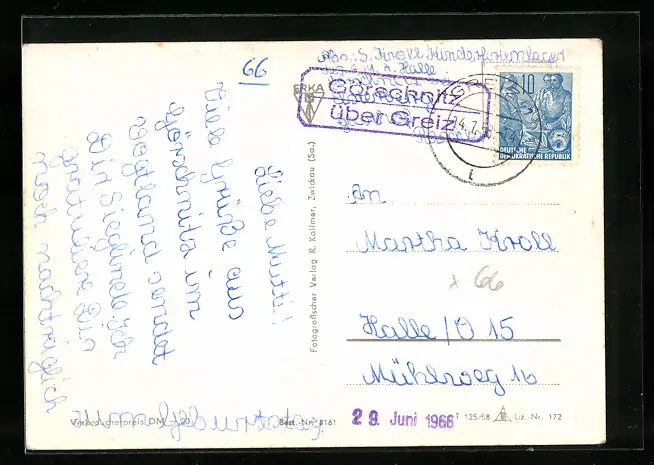 66
Abs.: S. Kroll Kinderferienlager
Halle
ERKA
Görschnitz
über Greiz
GREIZ
10
5
DEUTSCHE
DEMOKRATISCHE REPUBLIK
Liebe Mutti!
Viele Grüße aus
Görschnitz im
Vogtland sendet
Dir Sieglinde. Ich
gratuliere Dir
noch nachträglich
zum Geburtstag
Fotografischer Verlag R. Kallmer, Zwickau (Sa.)
An
Martha Kroll
x 66
Halle/O 15
Mühlweg 16
Verbraucherpreis DM
Best.-Nr. 8161
29. Juni 1966
T 125/58
Liz.-Nr. 172